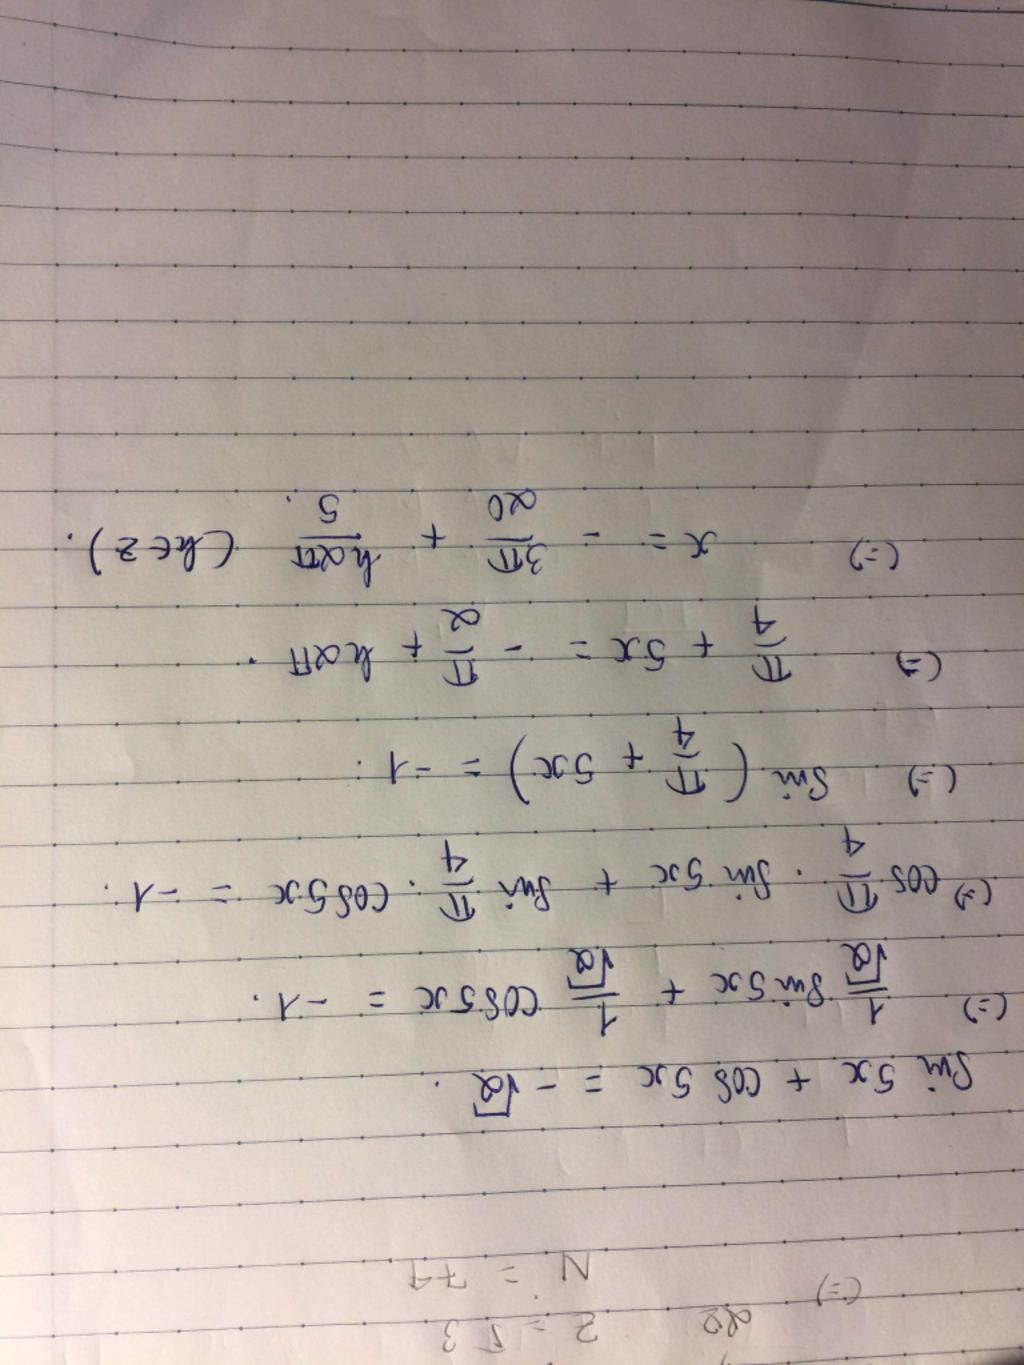 (=) 2Z = 53
N = 71
Sin 5x + cos 5x = -√2.
(=) 1/√2 Sin 5x + 1/√2 cos 5x = -1.
(=) cos π/4 . Sin 5x + Sin π/4 . cos 5x = -1.
(=) Sin (π/4 + 5x) = -1.
(=) π/4 + 5x = -π/2 + k2π.
(=) x = -3π/20 + k2π/5. (k∈Z).